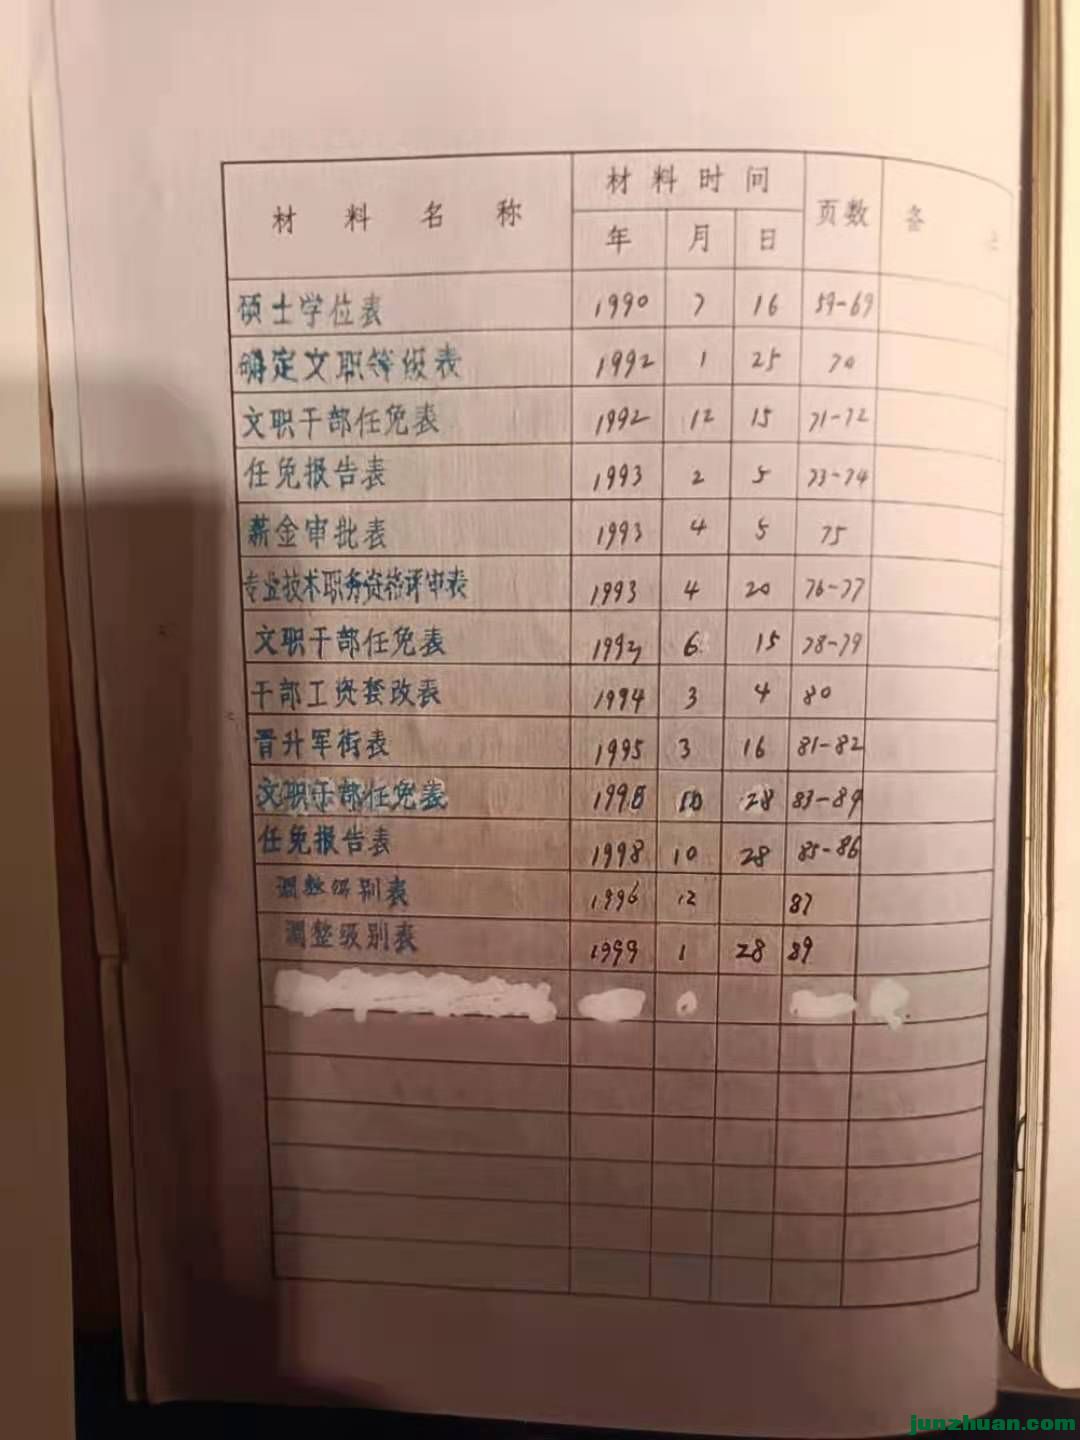 材料名称 材料时间 页数 备
年 月 日
硕士学位表 1990 7 16 59-69
确定文职等级表 1992 1 25 70
文职干部任免表 1992 12 15 71-72
任免报告表 1993 2 5 73-74
薪金审批表 1993 4 5 75
专业技术职务资格评审表 1993 4 20 76-77
文职干部任免表 6 15 78-79
干部工资套改表 1994 3 4 80
晋升军衔表 1995 3 16 81-82
文职干部任免表 28
任免报告表 1998 10 28 85-86
调整级别表 1996 12 87
调整级别表 1999 1 28 89
junzhuan.com